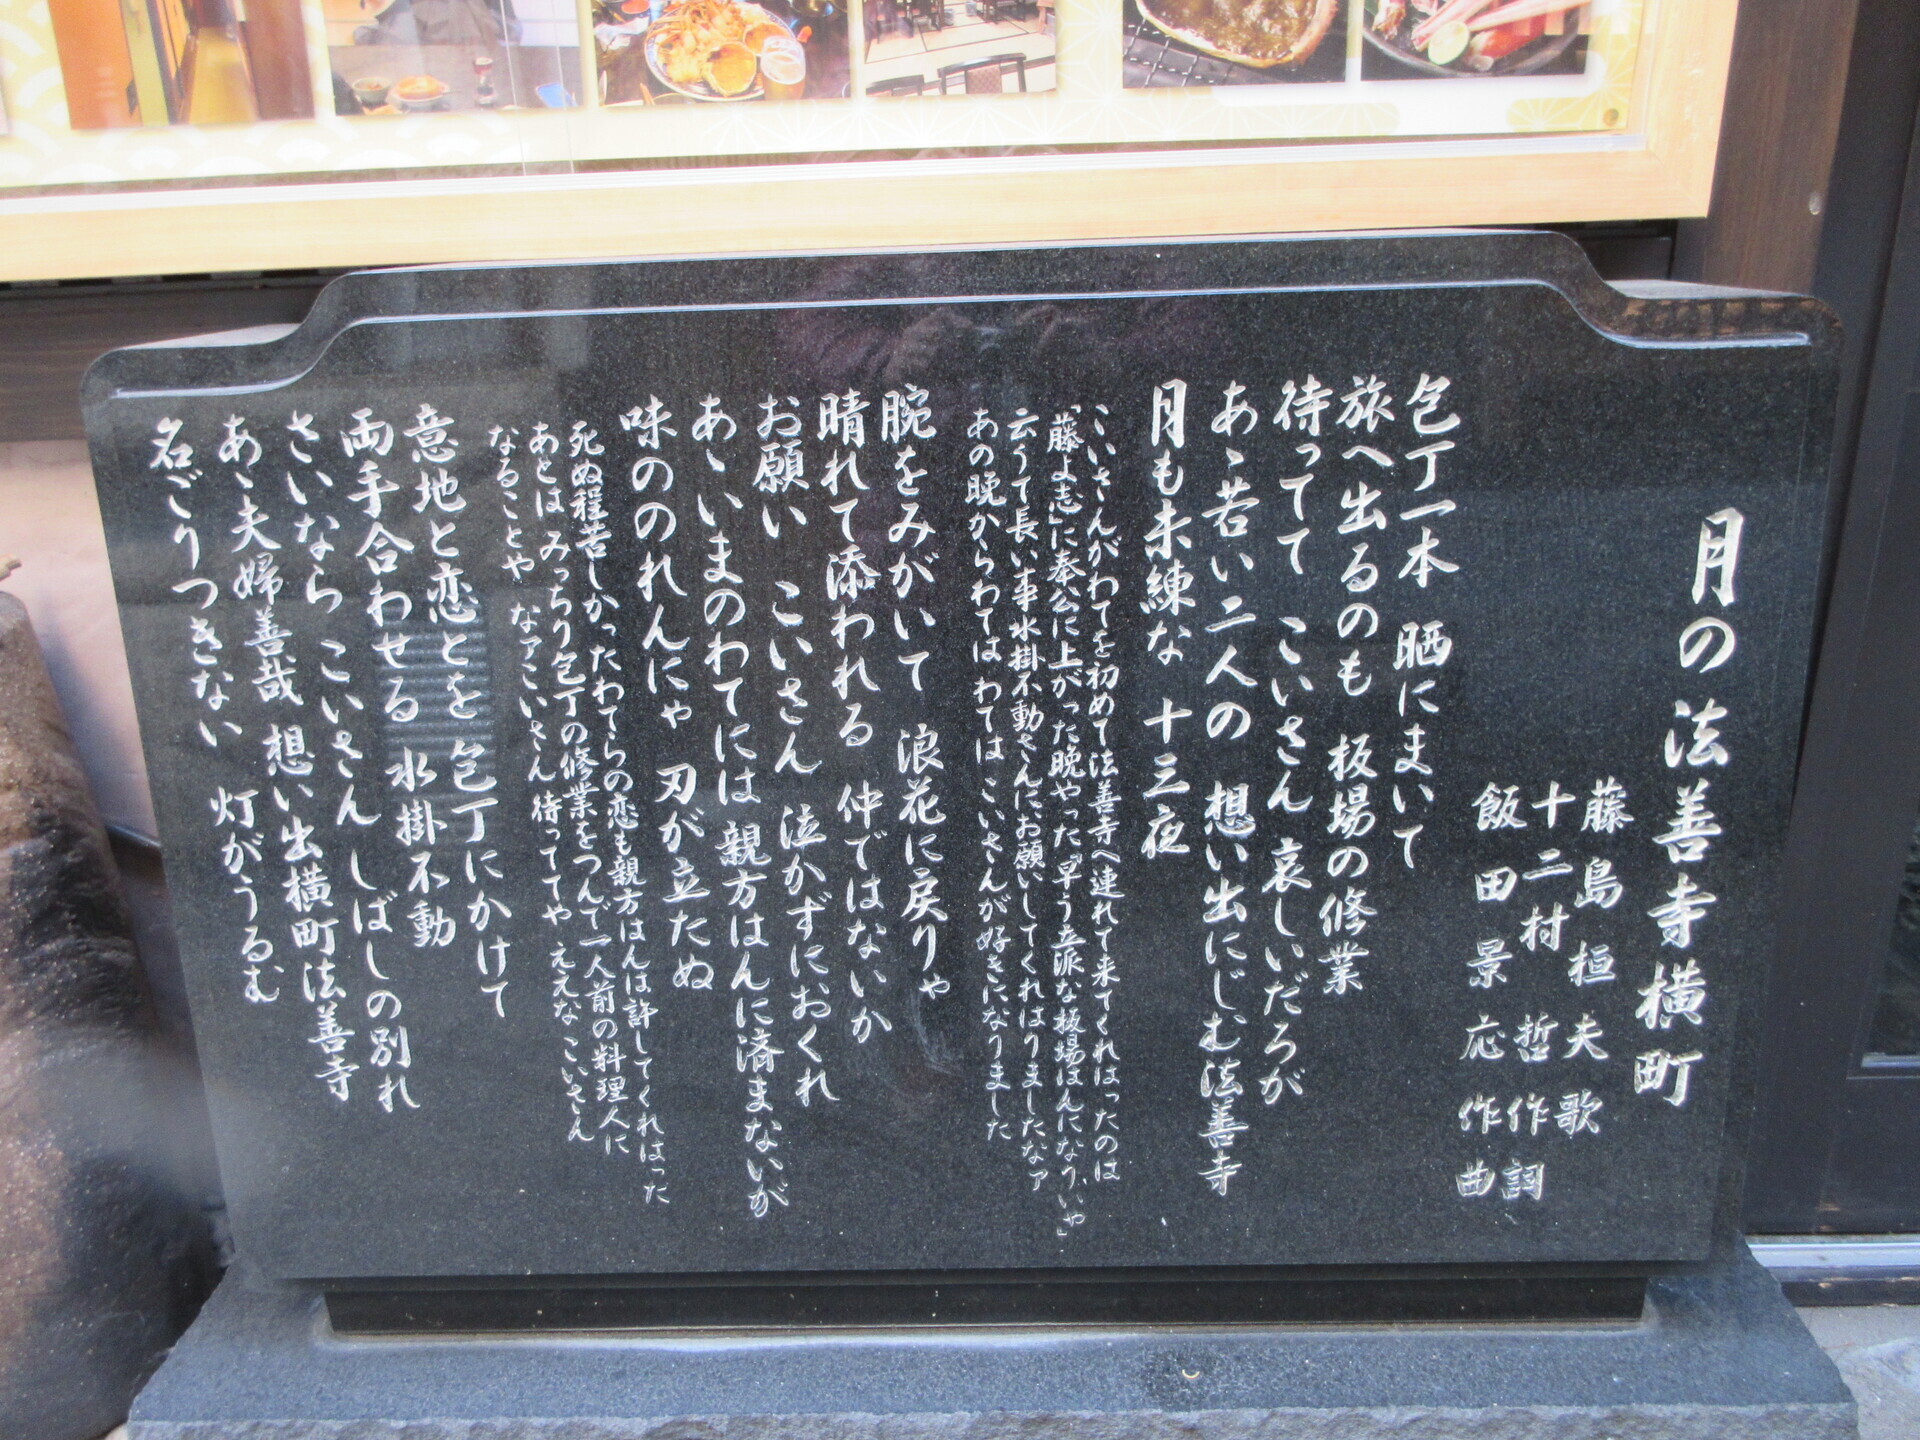 月の法善寺横町
藤島桓夫歌
十二村哲作詞
飯田景応作曲
包丁一本 晒にまいて
旅へ出るのも 板場の修業
待ってて こいさん 哀しいだろが
あゝ若い二人の 想い出にじむ法善寺
月も未練な 十三夜
こいさんがわてを初めて法善寺へ連れて来てくれはったのは
「藤よ志」に奉公に上がった晩やった「早う立派な板場はんになりいや」
云うて長い事水掛不動さんにお願いしてくれはりましたなァ
あの晩からわては わては こいさんが好きになりました
腕をみがいて 浪花に戻りゃ
晴れて添われる 仲ではないか
お願い こいさん 泣かずにおくれ
あゝいまのわてには 親方はんに済まないが
味ののれんにゃ 刃が立たぬ
死ぬ程苦しかったわてらの恋も親方はんは許してくれはった
あとは みっちり包丁の修業をつんで一人前の料理人に
なることや なァこいさん 待っててや ええな こいさん
意地と恋とを 包丁にかけて
両手合わせる 水掛不動
さいなら こいさん しばしの別れ
あゝ夫婦善哉 想い出横町法善寺
名ごりつきない 灯がうるむ